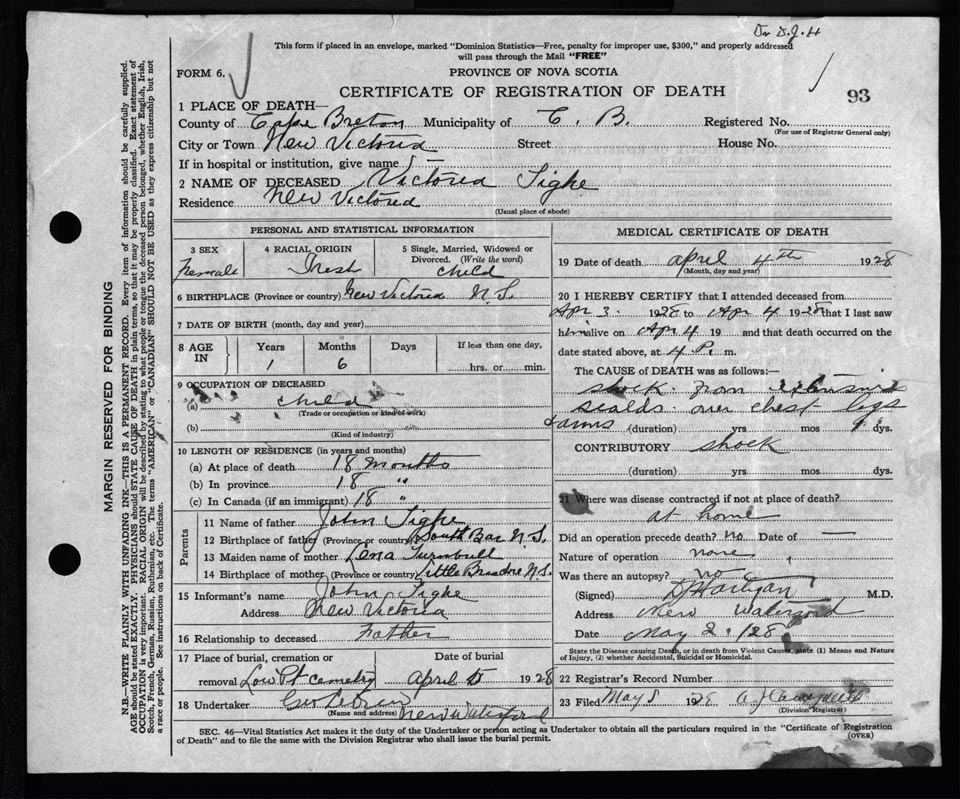 Dr D.J.H
This form if placed in an envelope, marked "Dominion Statistics—Free, penalty for improper use, $300," and properly addressed
will pass through the Mail "FREE"
FORM 6.
PROVINCE OF NOVA SCOTIA
CERTIFICATE OF REGISTRATION OF DEATH
93
1 PLACE OF DEATH—
County of Cape Breton Municipality of C. B. Registered No.
(For use of Registrar General only)
City or Town New Victoria Street House No.
If in hospital or institution, give name —
2 NAME OF DECEASED Victoria Tighe
Residence New Victoria
(Usual place of abode)
PERSONAL AND STATISTICAL INFORMATION
3 SEX Female 4 RACIAL ORIGIN Irish 5 Single, Married, Widowed or Divorced. (Write the word) child
6 BIRTHPLACE (Province or country) New Victoria N S.
7 DATE OF BIRTH (month, day and year)
8 AGE IN Years 1 Months 6 Days If less than one day, hrs. or min.
9 OCCUPATION OF DECEASED
(a) child
(Trade or occupation or kind of work)
(b)
(Kind of industry)
10 LENGTH OF RESIDENCE (in years and months)
(a) At place of death 18 months
(b) In province 18 "
(c) In Canada (if an immigrant) 18 "
Parents
11 Name of father John Tighe
12 Birthplace of father (Province or country) South Bar N.S.
13 Maiden name of mother Lena Turnbull
14 Birthplace of mother (Province or country) Little N.S.
15 Informant's name John Tighe
Address New Victoria
16 Relationship to deceased Father
17 Place of burial, cremation or removal Low Pt cemetry Date of burial April 1928
18 Undertaker Geo
(Name and address) New Waterford
MEDICAL CERTIFICATE OF DEATH
19 Date of death April 4th 1928
(Month, day and year)
20 I HEREBY CERTIFY that I attended deceased from
Apr 3. 1928 to Apr 4 1928 that I last saw
h alive on Apr 4 19 and that death occurred on the
date stated above, at 4 P. m.
The CAUSE of DEATH was as follows:—
shock from extensive
scalds over chest legs
& arms (duration) yrs mos dys.
CONTRIBUTORY shock
(duration) yrs mos dys.
21 Where was disease contracted if not at place of death?
at home
Did an operation precede death? No Date of —
Nature of operation none
Was there an autopsy? no
(Signed) M.D.
Address New Waterford
Date May 2/28
State the Disease causing Death, or in death from Violent Causes, state (1) Means and Nature
of Injury, (2) whether Accidental, Suicidal or Homicidal.
22 Registrar's Record Number
23 Filed May 8 1928 A J
(Division Registrar)
SEC. 46—Vital Statistics Act makes it the duty of the Undertaker or person acting as Undertaker to obtain all the particulars required in the "Certificate of Registration
of Death" and to file the same with the Division Registrar who shall issue the burial permit.
(OVER)
MARGIN RESERVED FOR BINDING
N.B.—WRITE PLAINLY WITH UNFADING INK—THIS IS A PERMANENT RECORD. Every item of information should be carefully supplied.
AGE should be stated EXACTLY. PHYSICIANS should STATE CAUSE OF DEATH in plain terms, so that it may be properly classified. Exact statement of
OCCUPATION is very important. RACIAL ORIGIN will be described by stating to what people or tongue the deceased person belonged, whether English, Irish,
Scotch, French, German, Russian, Ruthenian, etc. The terms "AMERICAN" or "CANADIAN" SHOULD NOT BE USED as they express citizenship but not
a race or people. See instructions on back of Certificate.